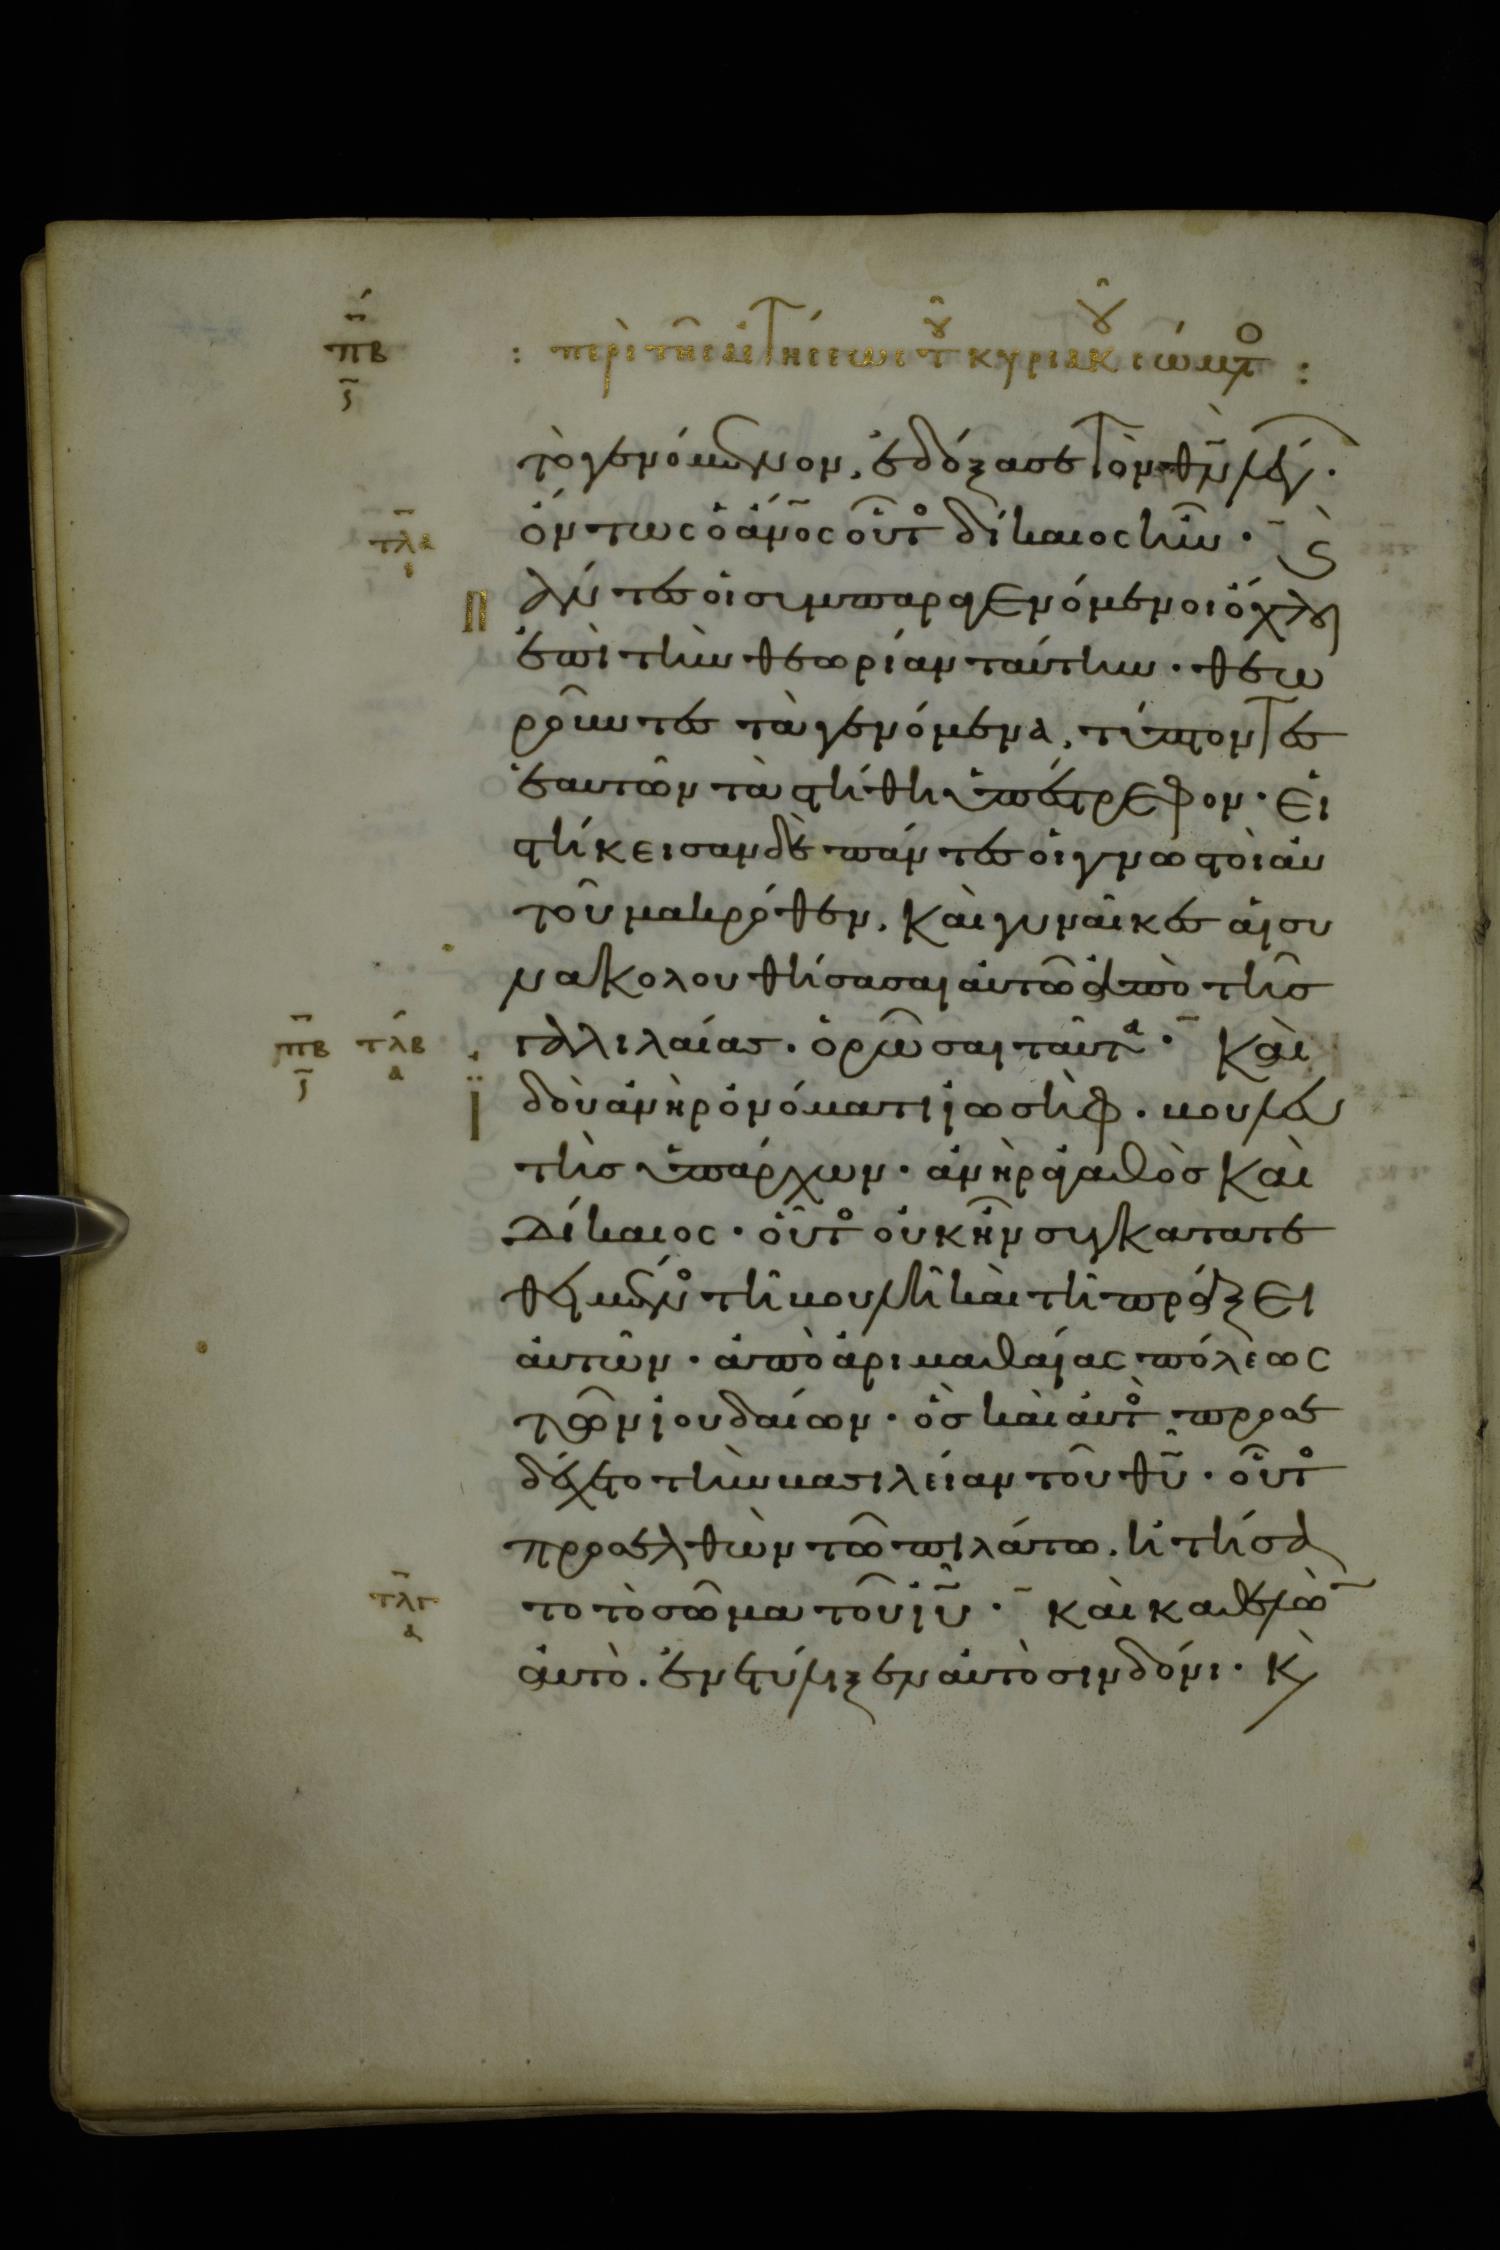 πβ : περὶ τῆς αἰτήσεως τοῦ κυριακοῦ σώματο :
τὸ γενόμενον, ἐδόξασε τὸν θν λέγων·
ὄντως ὁ ἄνος οὗτος δίκαιος ἦν· ς
τλα
πάντες οἱ συμπαραγενόμενοι ὄχλοι
ἐπὶ τὴν θεωρίαν ταύτην· θεω
ροῦντες τὰ γενόμενα, τύπτοντες
ἑαυτῶν τὰ στήθη ὑπέστρεφον· εἱ
στήκεισαν δὲ πάντες οἱ γνωστοὶ αυ
τοῦ μακρόθεν, καὶ γυναῖκες αἱ συ
νακολουθήσασαι αὐτῶ ἀπὸ τῆς
γαλιλαίας· ὁρῶσαι ταῦτα· Και
πβ τλβ
ϊδοὺ ἀνὴρ ὀνόματι ϊωσὴφ· βουλευ
τὴς ὑπάρχων· ἀνὴρ ἀγαθὸς καὶ
δίκαιος· οὗτος οὐκ ἦν συγκατατε
θειμένος τῆ βουλῆ καὶ τῆ πράξει
αὐτῶν· ἀπὸ ἀριμαθαίας πόλεως
τῶν ϊουδαίων· ὃς καὶ αὐτὸς προσε
δέχετο τὴν βασιλείαν τοῦ θυ· οὗτος
προσελθὼν τῶ πιλάτω. ἠτήσα
το τὸ σῶμα τοῦ ιυ· καὶ καθελὼν
τλγ
αὐτὸ. ἐνετύλιξεν αὐτὸ σινδόνι· κ